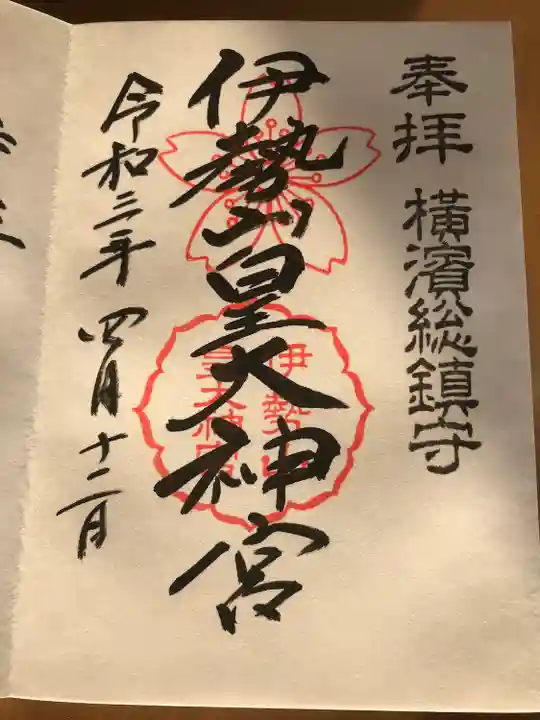 奉拝 横濱総鎮守
伊勢山皇大神宮
伊勢山
皇大神宮
令和三年 四月十二日